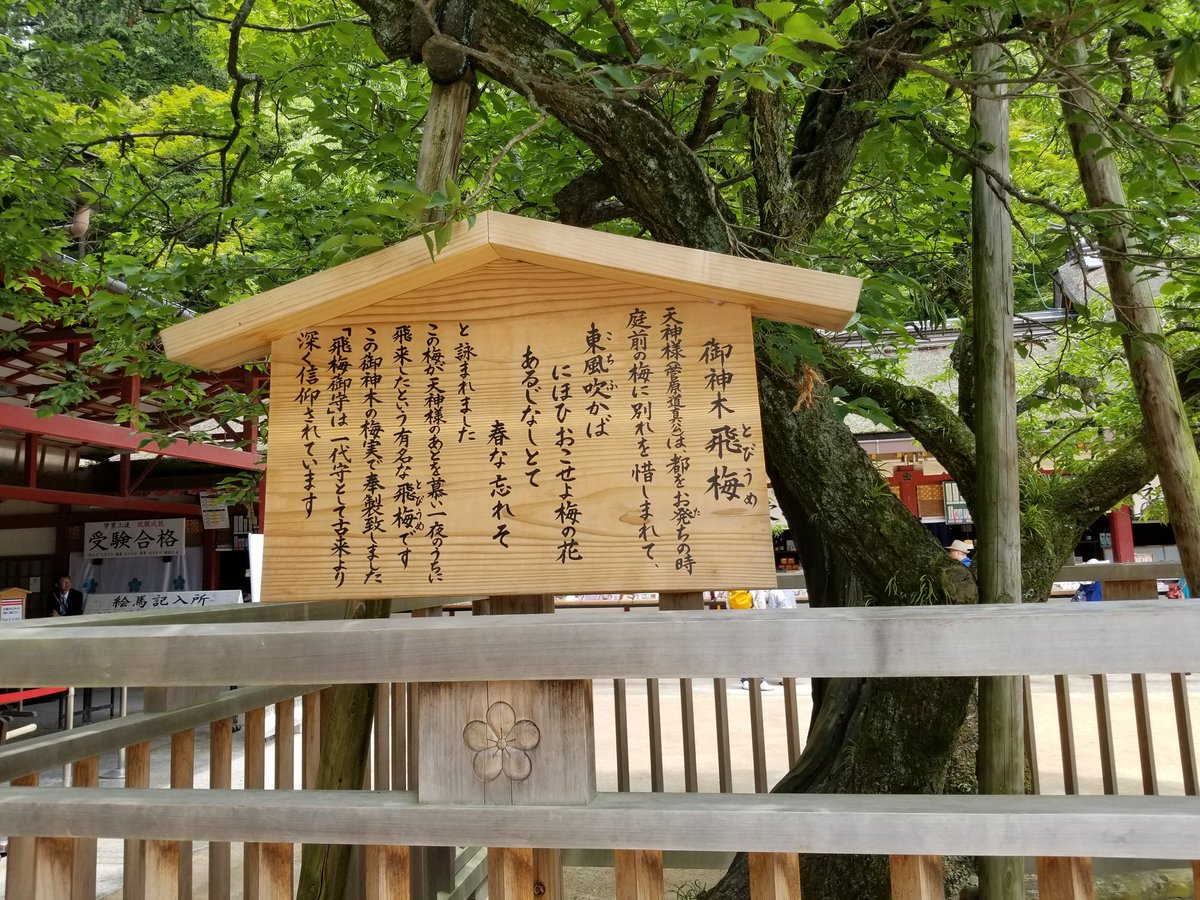 御神木 飛梅
とびうめ
天神様(菅原道真公)は都をお発ちの時
た
庭前の梅に別れを惜しまれて、
東風吹かば
こち ふ
にほひおこせよ梅の花
あるじなしとて
春な忘れそ
と詠まれました
この梅が天神様のあとを慕い一夜のうちに
飛来したという有名な飛梅です
とびうめ
この御神木の梅実で奉製致しました
「飛梅御守」は一代守として古来より
深く信仰されています
学業上達 就職成就
受験合格
絵馬記入所